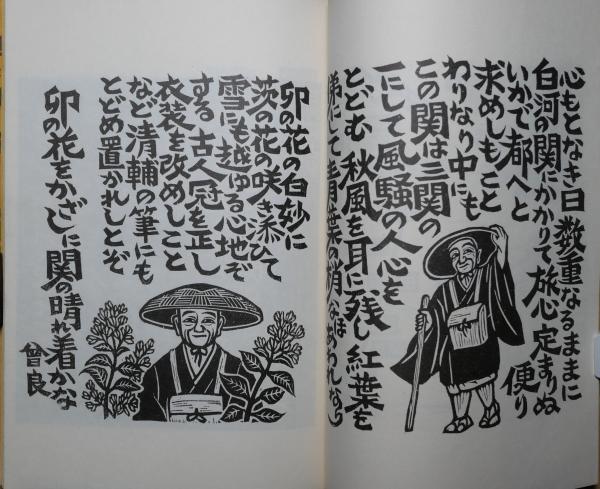 心もとなき日 数重なるままに
白河の関にかかりて旅心定まりぬ
いかで都へと 便り
求めしもこと
わりなり中にも
この関は三関の
一にして風騒の人心を
とどむ 秋風を耳に残し紅葉を
俤にして青葉の梢なほあわれなり
卯の花の白妙に
茨の花の咲き添ひて
雪にも越ゆる心地ぞ
する 古人冠を正し
衣装を改めしこと
など 清輔の筆にも
とどめ置かれしとぞ
卯の花をかざしに関の晴れ着かな
曾良